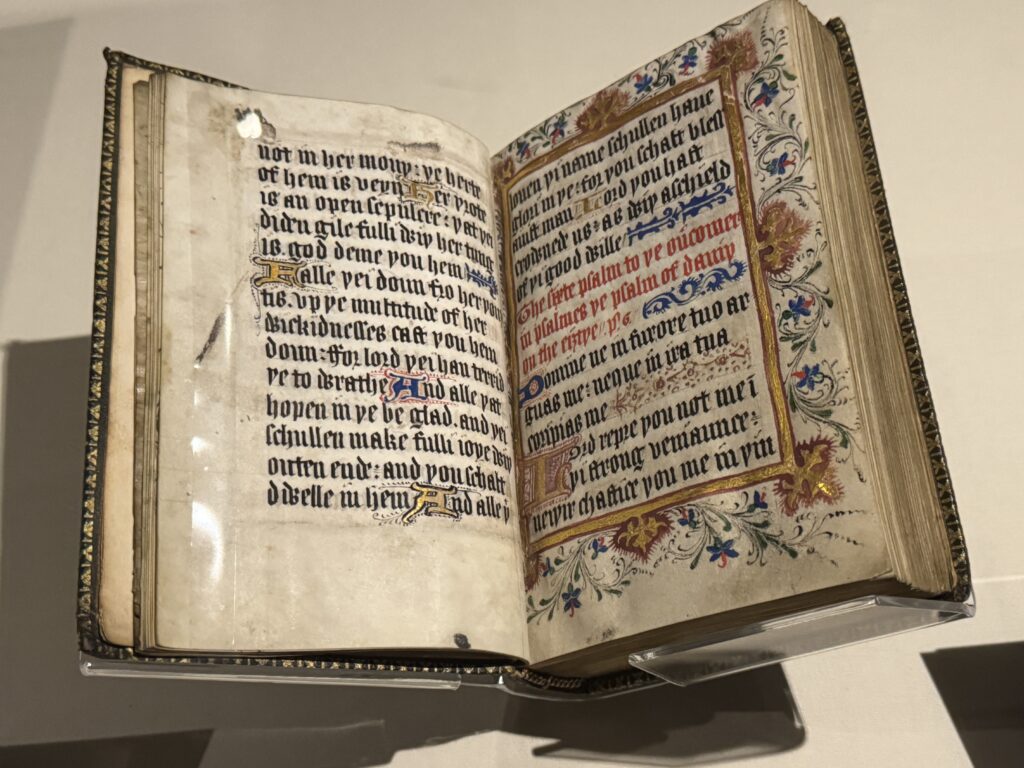 not in her mouy: ye herte
of hem is veyn Her yrote
is an open sepulcre: yat yei
diden gile fulli wiy her tung
is. god deme you hem
Falle yei doun fro her you
tis. vp ye multitude of her
wickidnesses cast you hem
doun: ffor lord yei han terrid
ye to wrathe And alle yat
hopen in ye be glad. and yei
schullen make fulli ioye wiy
outen ende: and you schalt
dwelle in hem And alle y
louen yi name schullen haue
glori in ye: for you schalt bless
a iust man Lord you hast
crowned us: as wiy a schield
of yi good wille
The sixte psalm to ye ouercomer
in psalmes ye psalm of dauiy
on the eiztye / ps. 6.
Domine ne in furore tuo ar
guas me: neque in ira tua
corripias me
Lord repre you not me i
yi strong veniaunce:
neiyir chastice you me in yin